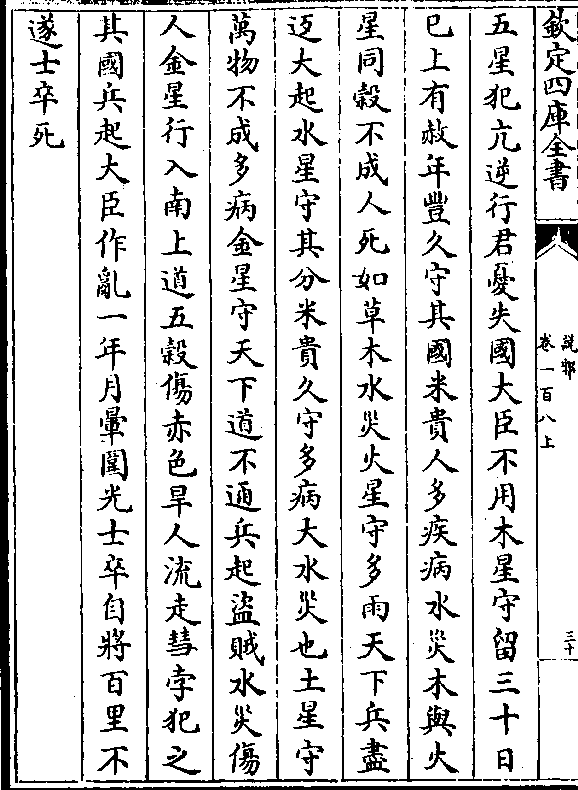 欽定四庫全書
說郛
卷一百八上
三十
五星犯亢逆行君憂失國大臣不用木星守留三十日
已上有赦年豐久守其國米貴人多疾病水災木與火
星同穀不成人死如草木水災火星守多雨天下兵盡
迓大起水星守其分米貴久守多病大水災也土星守
萬物不成多病金星守天下道不通兵起盜賊水災傷
人金星行入南上道五穀傷赤色旱人流走彗孛犯之
其國兵起大臣作亂一年月暈圍光士卒自將百里不
遂士卒死